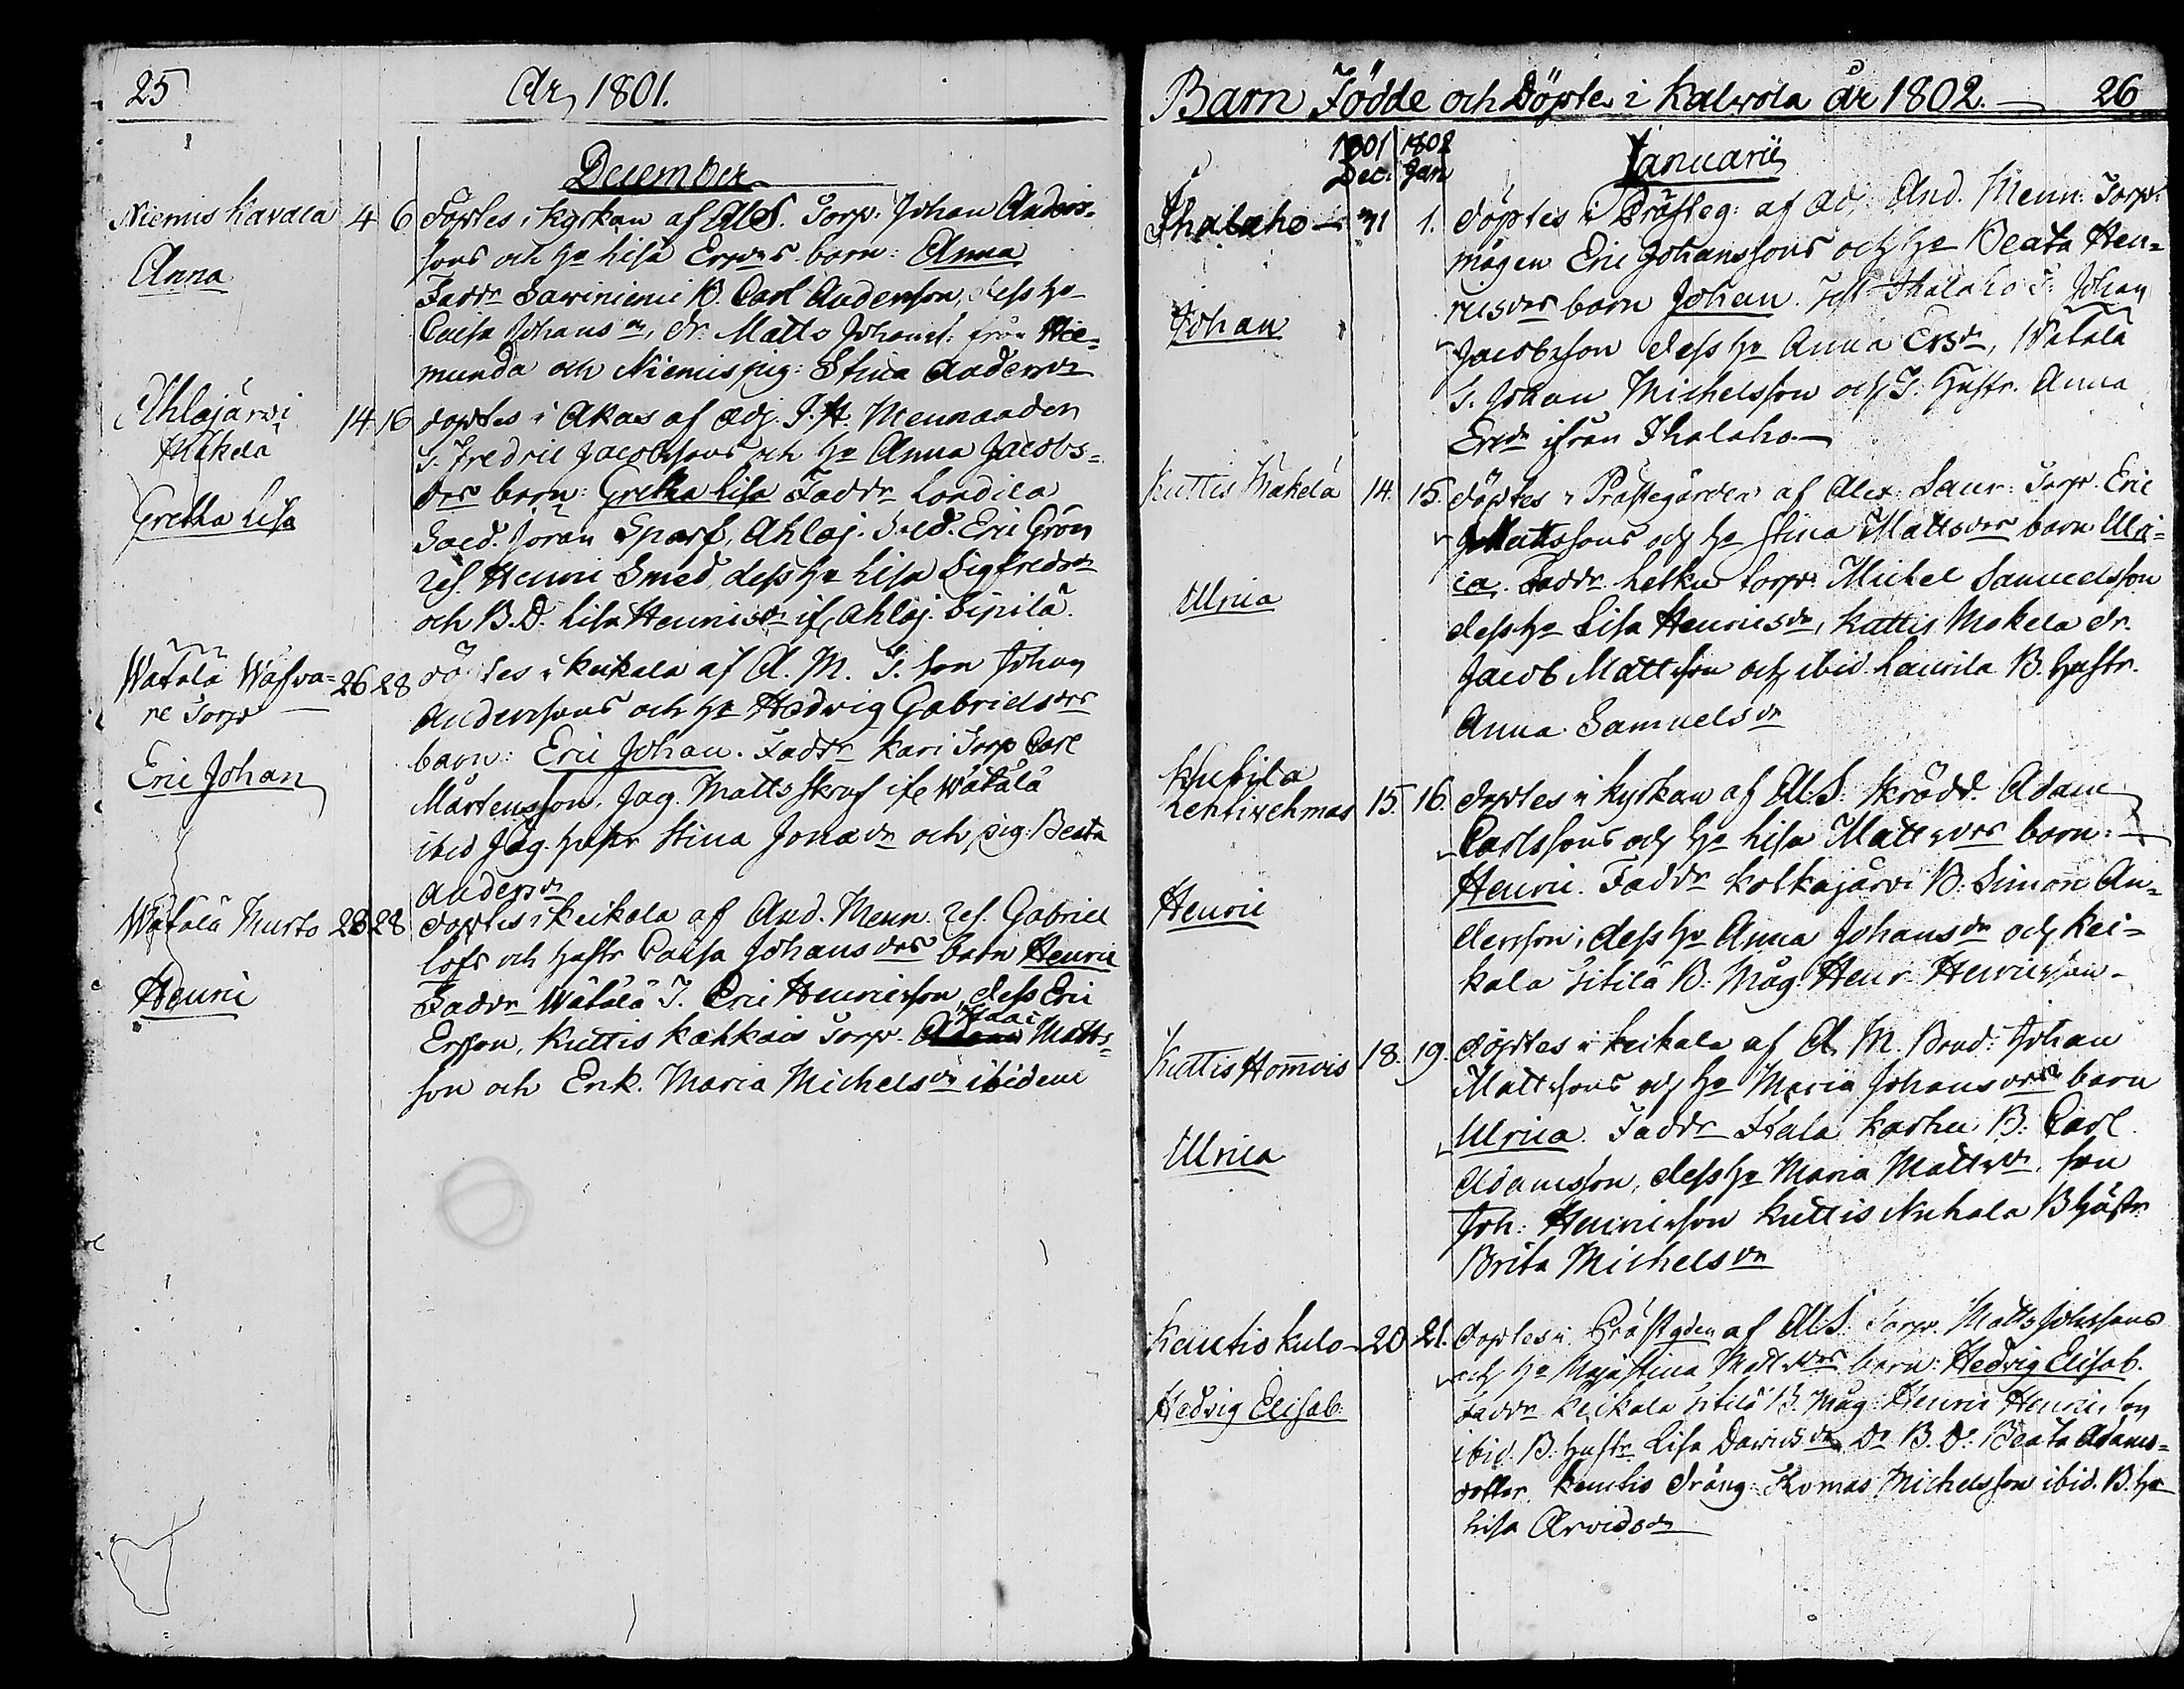 25
År 1801.
December
Niemis Kavala 4 6 Döptes i kyrkan af Al. S. Torp. Johan Anders-
Anna
sons och h. Lisa Ersdrs barn: Anna
Faddr Sawiniemi B. Carl Andersson, dess h.
Caisa Johansdr, dr. Matts Johans. från Nie=
munda och Niemis pig: Stina Andersdr
Ahlajärwi 14 16 döptes i Akas af Adj. J. H. Mennander
Mäkelä
S. Fredric Jacobssons och h. Anna Jacobs=
Gretha Lisa
drs barn: Gretha Lisa Faddr Londila
Sold. Jöran Sparf, Ahlaj. Sold. Eric Grön
res. Henric Smed, dess h. Lisa Sigfredsdr
och B. D. Lisa Henricsdr if. Ahlaj. Sipilä
Wätälä Wäh 26 28 döptes i Keikala af A. M. T. Johan
re Torp
Anderssons och h. Hedwig Gabrielsdrs
Eric Johan
barn: Eric Johan. Faddr Kari Torp Carl
Mårtensson, Jag. Matts Skraf ifr. Wätälä
ibid Jag. Hustr Stina Jonadr och pig. Beata
Andersdr
Wätälä Murto 28 28 döptes i Keikala af And. Menn. res. Gabriel
Henric
Lofs och Hustr Caisa Johansdrs barn Henric
Faddr Wätälä T. Eric Henricsson, dess Eric
Ersson, Kuttis Kahkais Torp. Isaac Matts=
son och Enk. Maria Michelsdr ibidem
Barn Födde och Döpte i Kalwola år 1802. 26
1801 1802
Dec. Jan
Januarii
Ihalaho 31 1. döptes i Prästeg: af Adj. And. Menn: Torp.
mågen Eric Johanssons och h. Beata Hen=
Johan
ricsdrs barn Johan. Test. Ihalaho T. Johan
Jacobsson dess h. Anna Ersdr, Wätälä
S. Johan Michelsson och T. Hustr. Anna
Ersdr ifrån Ihalaho.
Kuttis Mäkelä 14. 15. döptes i Prästegården af Alex: Saur: Torp. Eric
Mattssons och h. Stina Mattsdrs barn Ulri=
Ulrica
ca. Faddr. Torp. Michel Samuelsson
dess h. Lisa Henricsdr, Kuttis Mäkelä dr.
Jacob Mattsson och ibid. Laurila B. Hustr.
Anna Samuelsdr
Lehtivehmas 15. 16. döptes i kyrkan af Al. S. Skrädd. Adam
Carlssons och h. Lisa Mattsdrs barn:
Henric
Henric. Faddr Kotkajärvi B. Simon An=
dersson, dess h. Anna Johansdr och Kei=
kala Sitilä B. Måg Henr. Henricsson
Kuttis Hom̄ois 18. 19. döptes i Keikala af A. M. Bond: Johan
Mattssons och h. Maria Johansdrs barn
Ulrica
Ulrica. Faddr Karhu B. Carl
Adamsson, dess h. Maria Mattsdr, son
Joh: Henricsson Kuttis Nuhala B. Hustr
Brita Michelsdr
Kantis Kulo 20 21. döptes i Prästgden af Al. S. Torp. Matts Johssons
och h. Maja Stina Mattsdrs barn: Hedvig Elisab.
Hedvig Elisab:
Faddr Keikala Sitilä B. Måg Henric Henricsson
ibid. B. Hustr. Lisa Davidsdr Do B. D: Beata Adams=
dotter. Kantis dräng: Thomas Michelsson ibid. B. h.
Lisa Arvidsdr